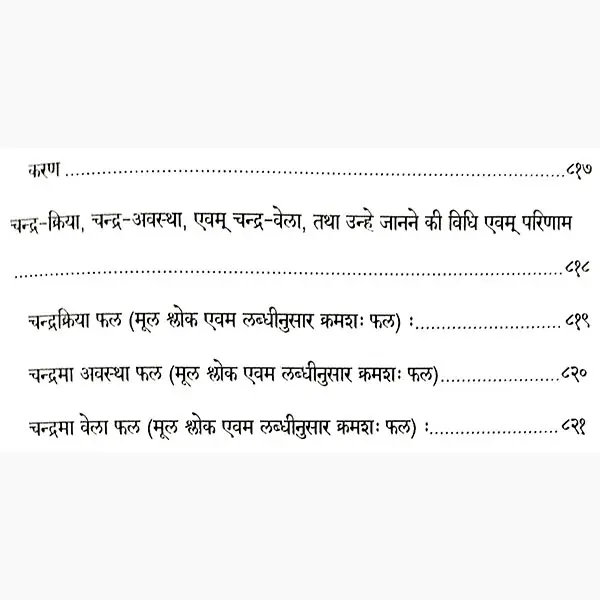 करण ........................................................................................८१७
चन्द्र-क्रिया, चन्द्र-अवस्था, एवम् चन्द्र-वेला, तथा उन्हे जानने की विधि एवम् परिणाम
................................................................................................८१८
चन्द्रक्रिया फल (मूल श्लोक एवम लब्धीनुसार क्रमशः फल) :..........................८१९
चन्द्रमा अवस्था फल (मूल श्लोक एवम लब्धीनुसार क्रमशः फल).....................८२०
चन्द्रमा वेला फल (मूल श्लोक एवम लब्धीनुसार क्रमशः फल) :.......................८२१